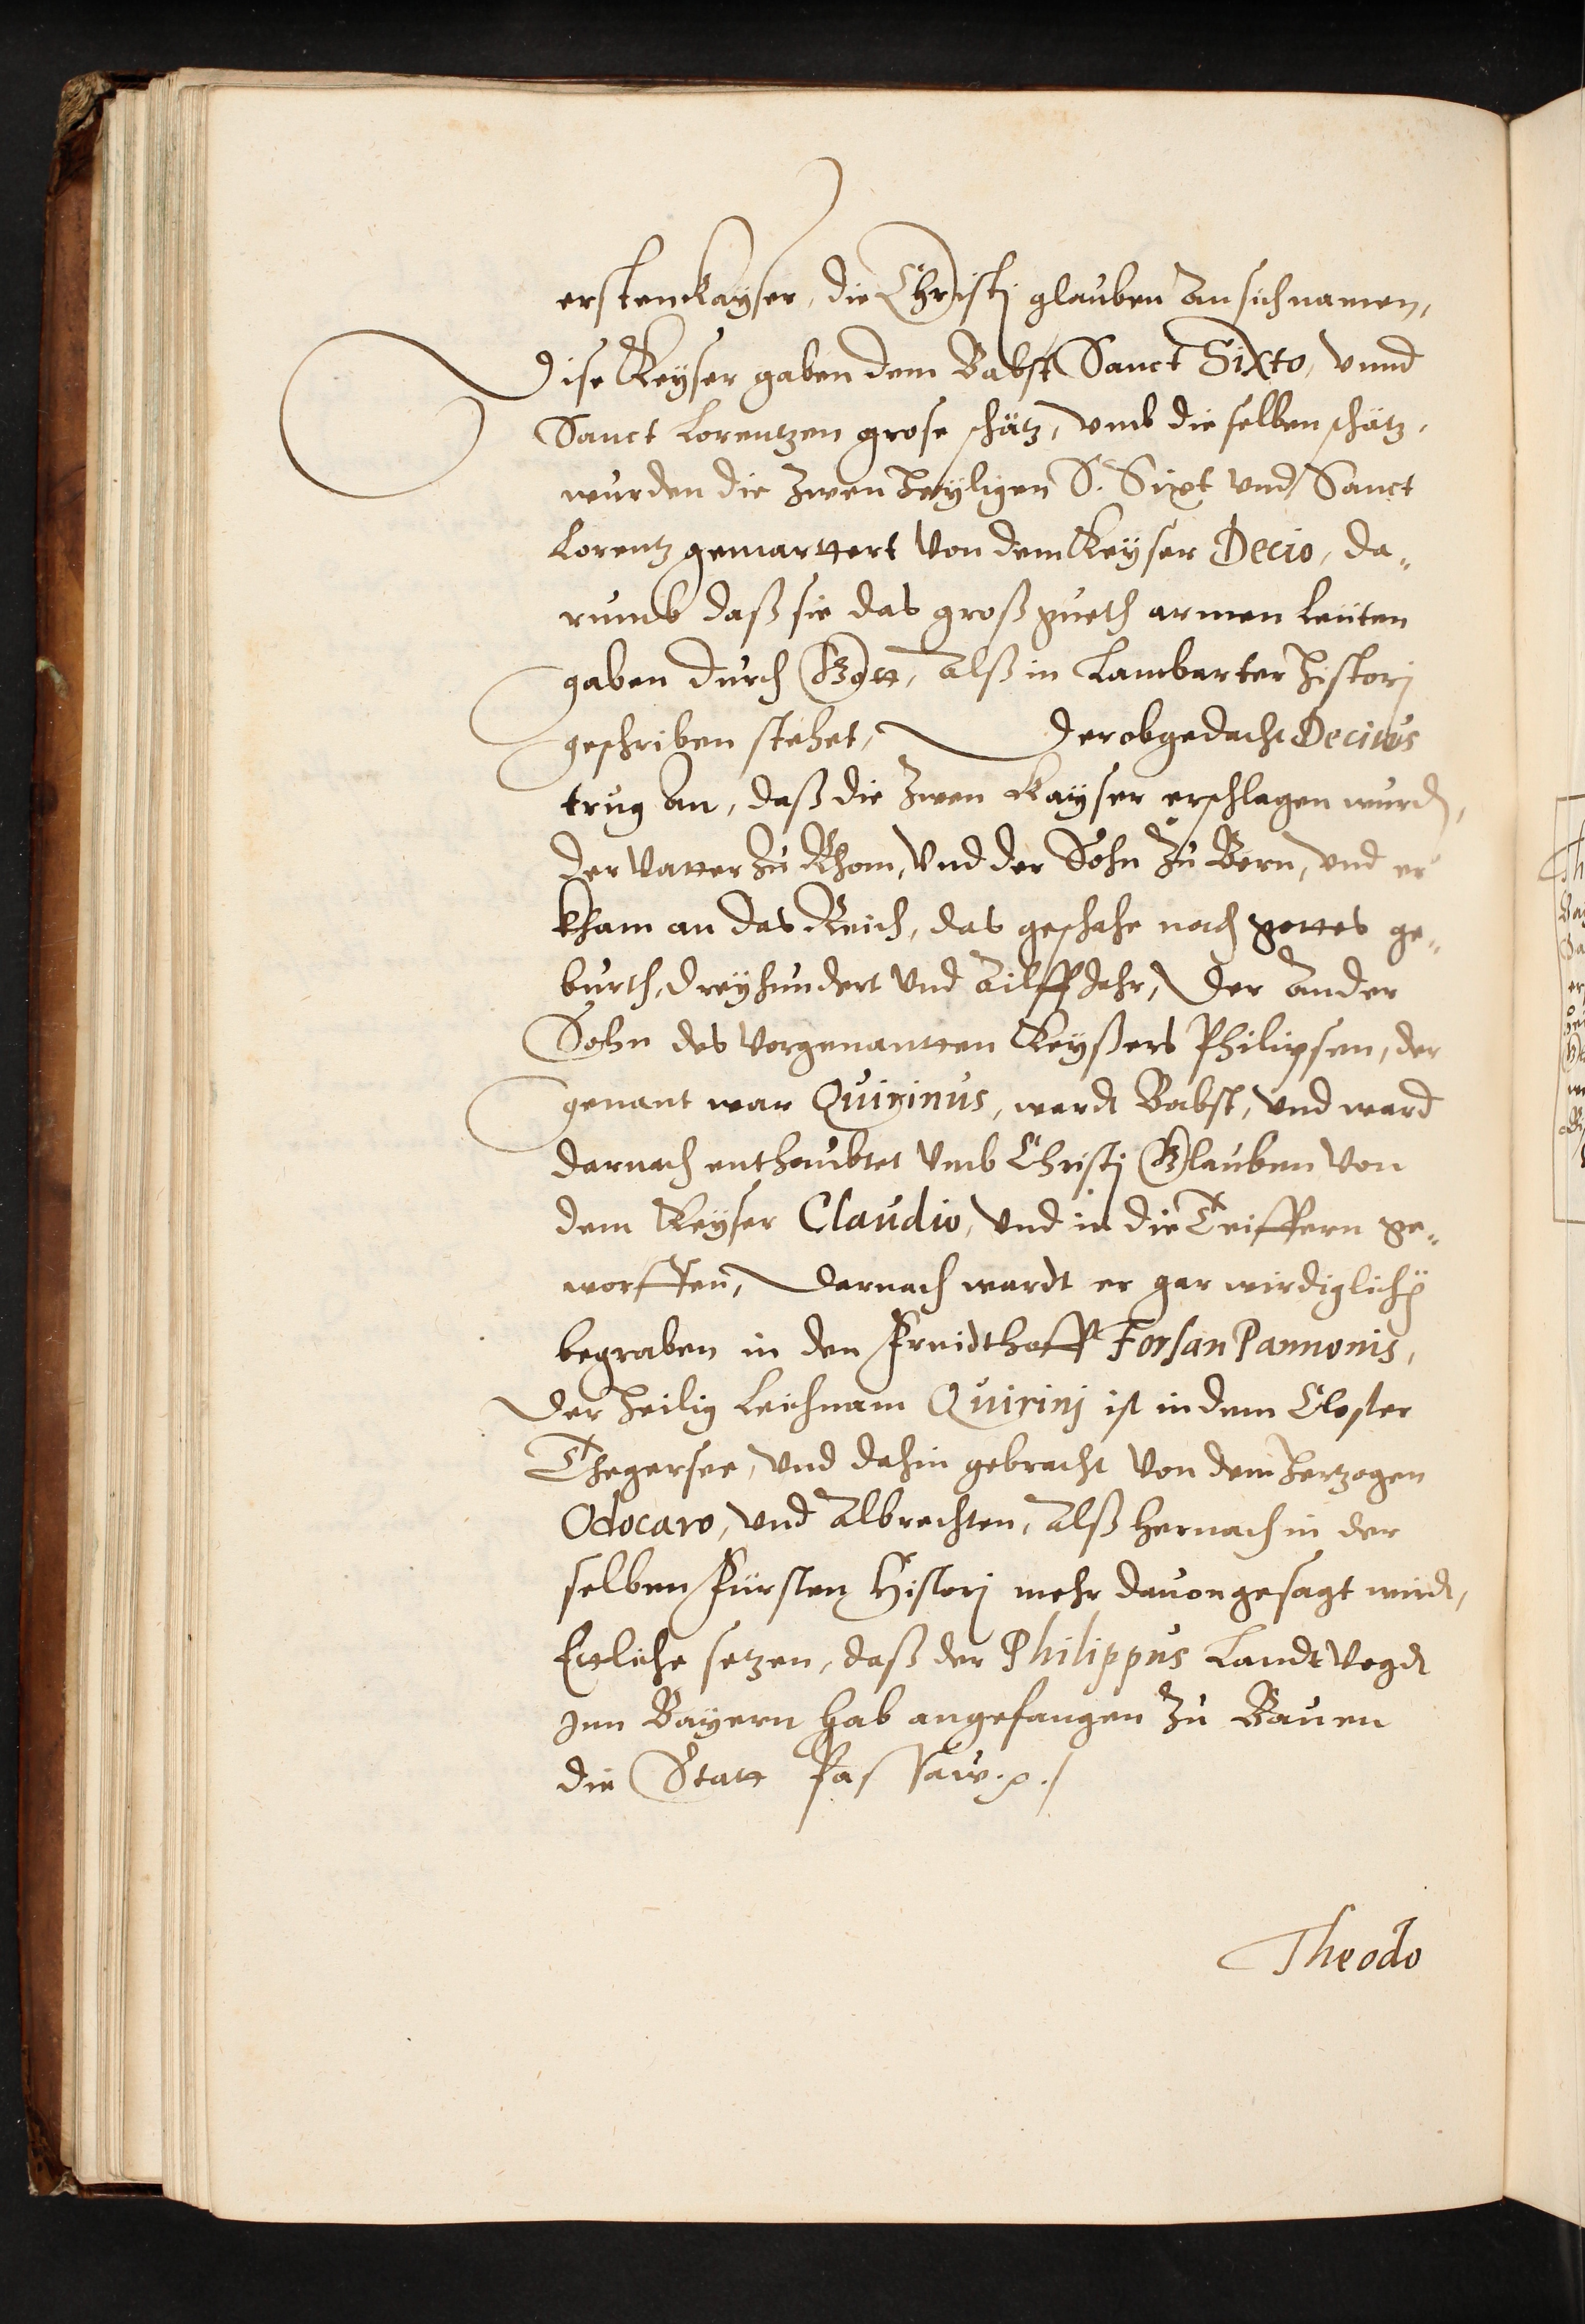 ersten Kayser, die Christj glauben an sich namen,
Dise Keyser gaben dem Babst Sanct Sixto, vnnd
Sanct Lorentzen grose schätz, vmb die selben schätz,
wurden die zwen heyligen S. Sixt vnd Sanct
Lorentz gemarttert von dem Keyser Decio, da„
rumb daß sie das groß gueth armen Leüten
gaben durch Gott, Alß in Lambarter histori
geschriben stehet, Der obgedacht Decius
trug an, daß die zwen Kayser erschlagen wurd,
der Vatter zu Rhom, vnd der Sohn zu Bern, vnd er
kham an das Reich, das geschahe nach gottes ge„
burth, dreyhundert vnd Ailff Jahr, Der Ander
Sohn des vorgenantten Keyßers Philipsen, der
genant war Quirinus, wardt Babst, vnd ward
darnach enthaubtet vmb Christj Glauben von
dem Keyser Claudio, vnd in die Teiffern ge„
worffen, Darnach wardt er gar wirdiglich
begraben in den Freidthoff Forsan Pannonis,
Der heilig Leichnam Quirinj ist in dem Closter
Thegersee, vnd dahin gebracht von dem Hertzogen
Odocaro, vnd Albrechten, Alß hernach in der
selben Fürsten Historj mehr dauon gesagt wirdt,
Ettliche setzen, daß der Philippus Landtvogdt
Jnn Bayern hab angefangen zu Bauen
die Statt Passaw.
Theodo